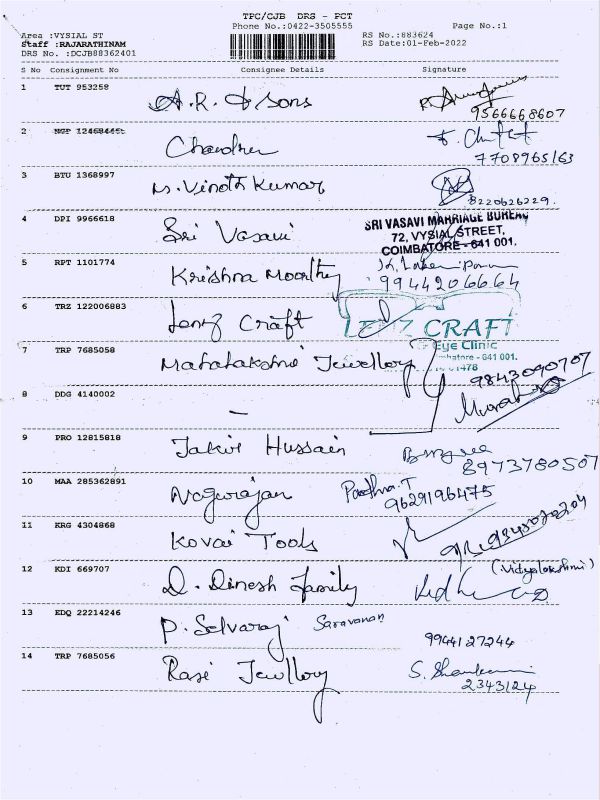 TPC/CJB DRS - PCT
Phone No.:0422-3505555
Page No.:1
Area :VYSIAL ST
Staff :RAJARATHINAM
DRS No. :DCJB88362401
RS No.:883624
RS Date:01-Feb-2022
S No Consignment No Consignee Details Signature
1 TUT 953258 A.R. & Sons
9566668607
2 NGP Chandru
7708965163
3 BTU 1368997 M. Vinoth Kumar
8220626229.
4 DPI 9966618 Sri Vasavi
SRI VASAVI MARRIAGE BUREAU
72, VYSIAL STREET,
COIMBATORE - 641 001.
5 RPT 1101774 Krishna Moorthy
9944206664
6 TRZ 122006883 Lenz Craft
LENZ CRAFT
Eye Clinic
641 001.
7 TRP 7685058 Mahalakshmi Jewellery
9843090707
8 DDG 4140002 —
9 PRO 12815818 Jakir Hussain
8973780507
10 MAA 285362891 Nagurajan
9629196475
11 KRG 4304868 Kovai Tools
12 KDI 669707 D. Dinesh family
(Vidyalakshmi)
13 EDQ 22214246 P. Selvaraj Saravanan
9944127244
14 TRP 7685056 Rasi Jewllery
2343124